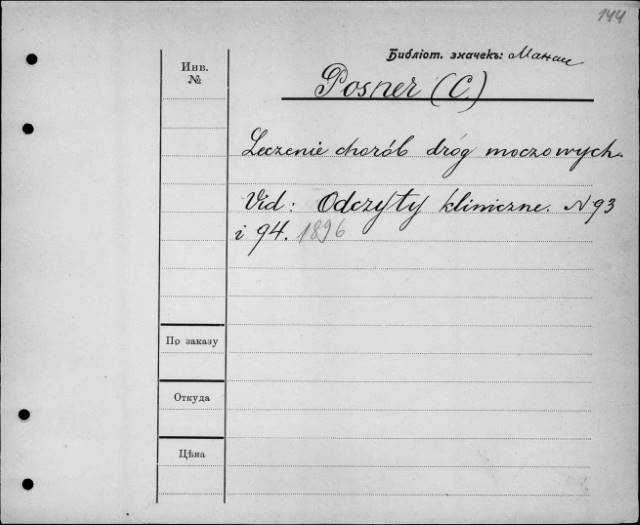 144
Библіот. значекъ:
Инв.
№
Posner (C.)
Leczenie chorób dróg moczowych.
Vid: Odczyty kliniczne. N 93
i 94. 1896
По заказу
Откуда
Цѣна